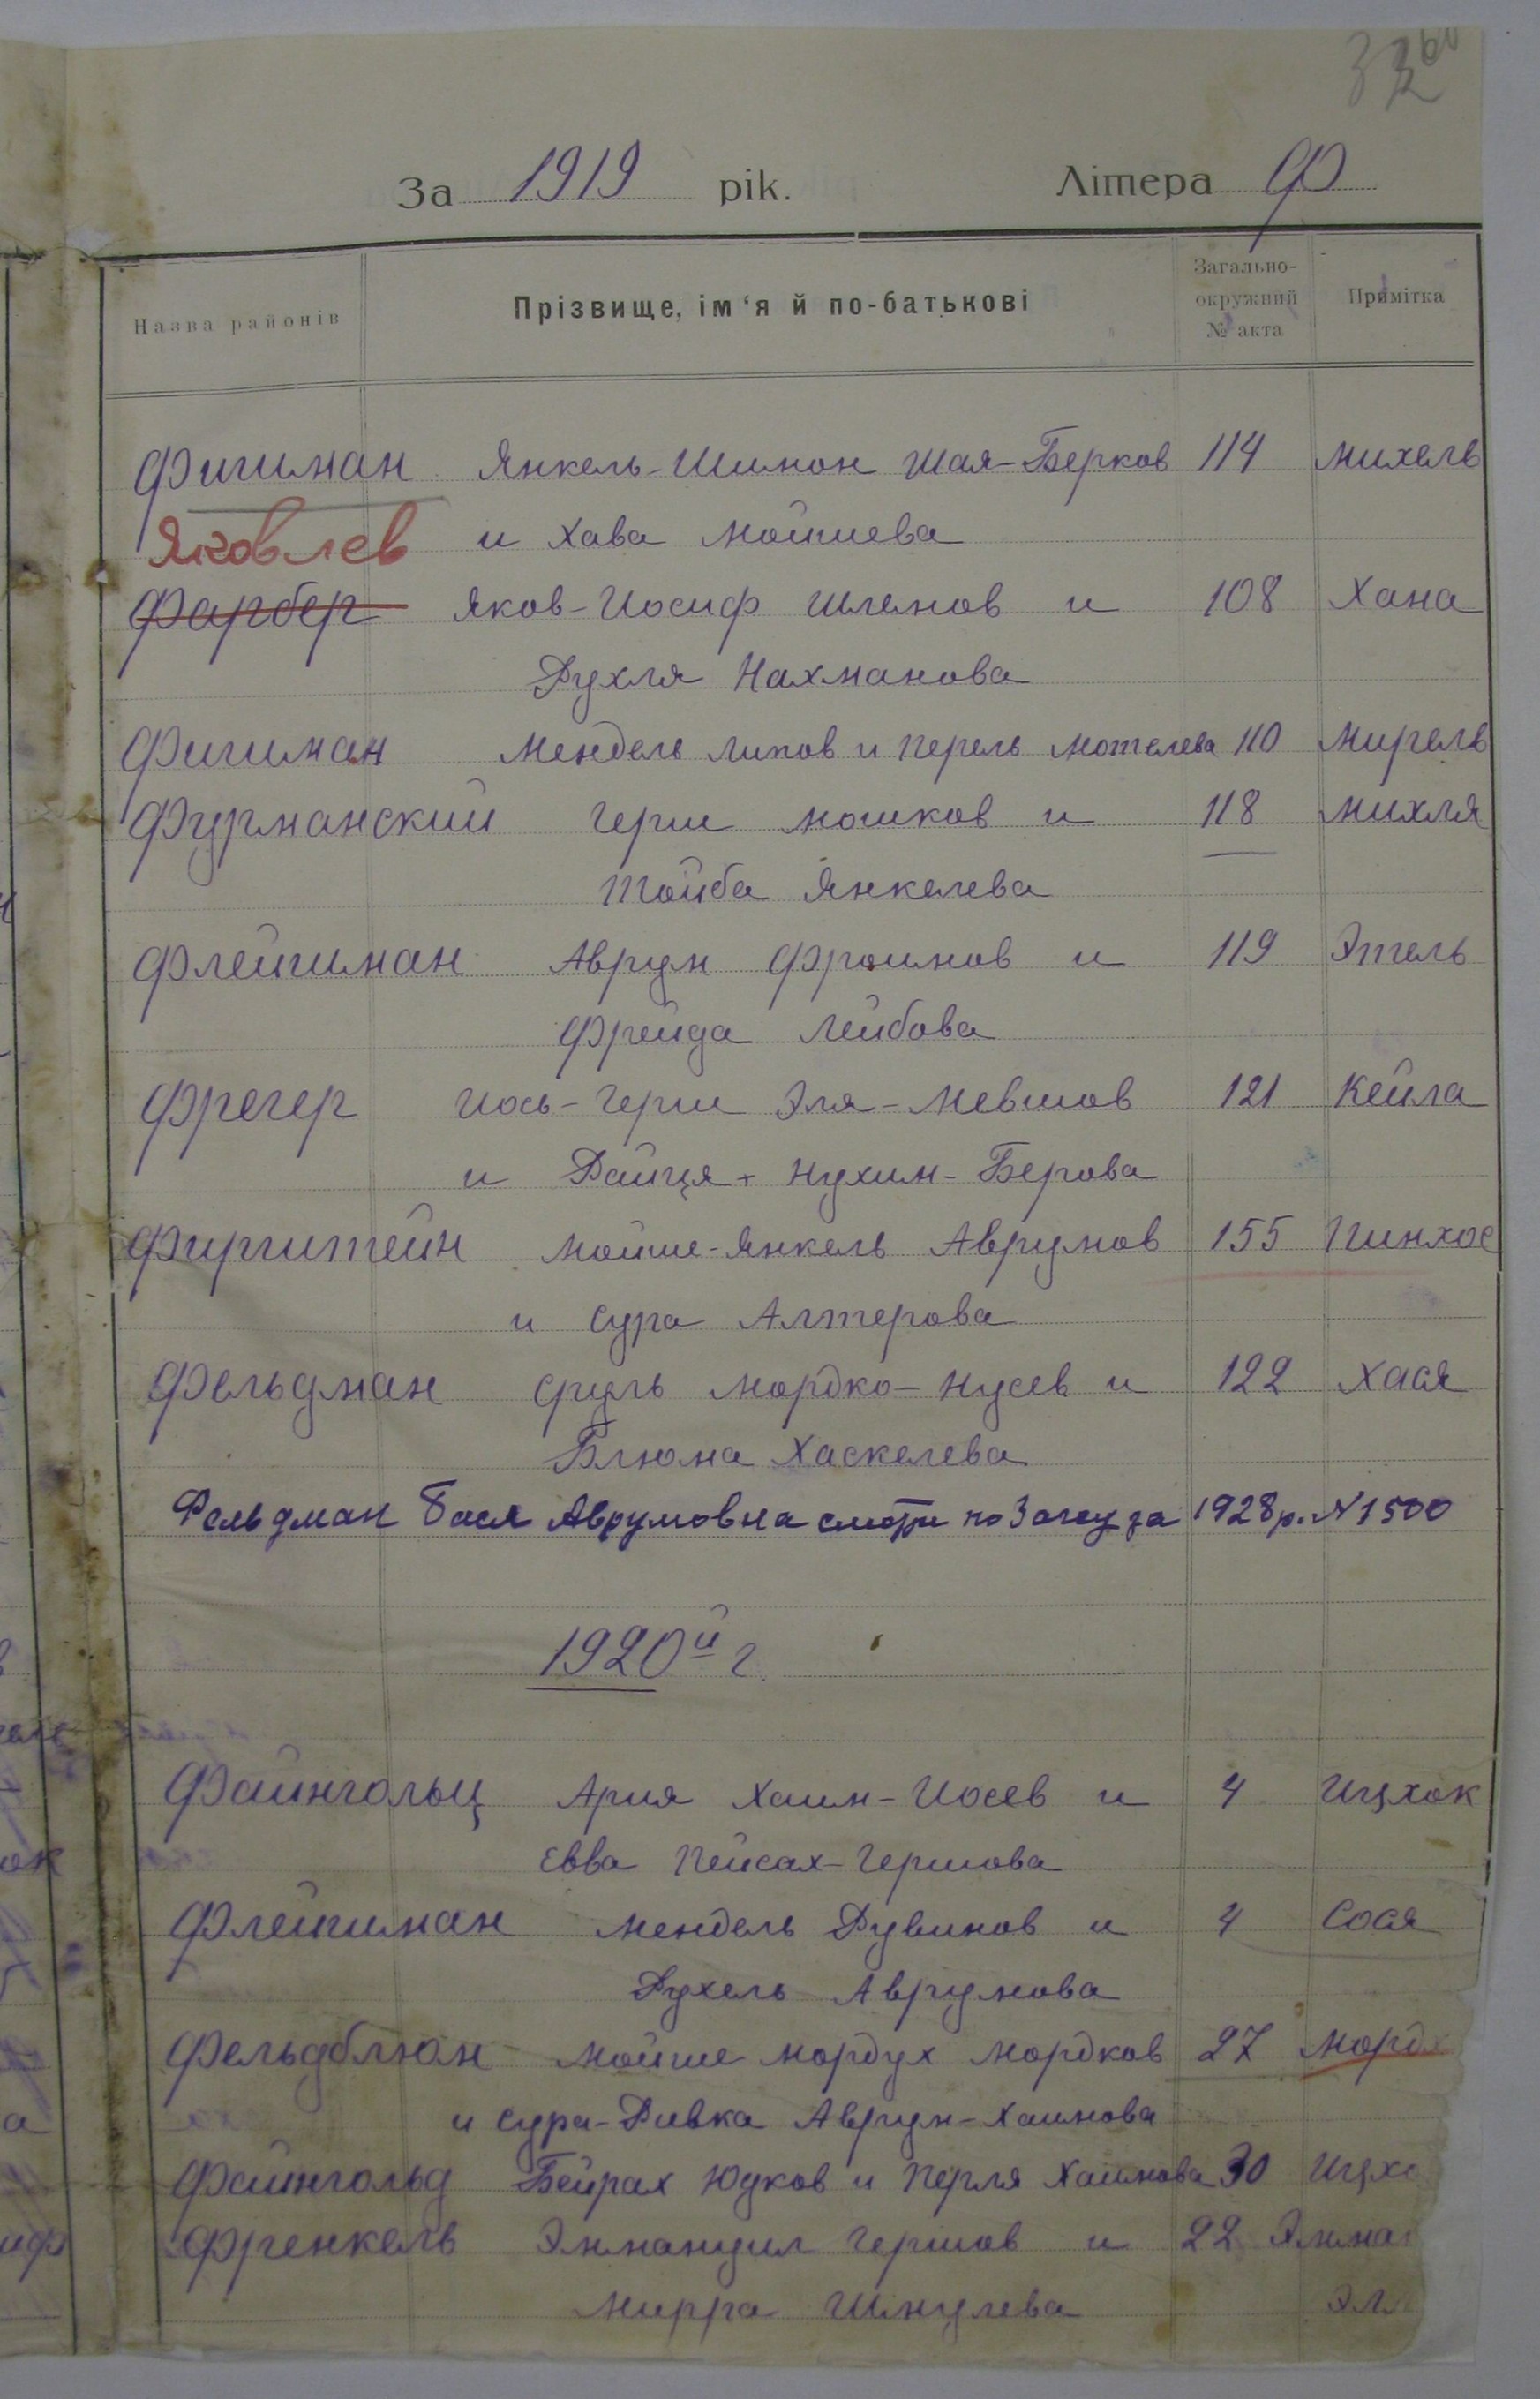 За 1919 рік. Літера Ф
Назва районів Прізвище, ім'я й по-батькові Загально-окружний № акта Примітка
Фишман Янкель-Шимон Шая-Берков 114 Михель
Яковлев и Хава Мойшева
Фарбер Яков-Иосиф Шлемов и 108 Хана
Рухля Нахманова
Фишман Мендель Липов и Перель Мотелева 110 Мирель
Фурманский Герш Мошков и 118 Михля
Тойба Янкелева
Флейшман Аврум Фроимов и 119 Этель
Фрейда Лейбова
Фрегер Иось-Герш Эля-Мевшов 121 Кейла
и Райця - Нухим-Берова
Фирштейн Мойше-Янкель Аврумов 155 Пинхос
и Сура Алтерова
Фельдман Сруль Мордко-Нусев и 122 Хася
Блюма Хаскелева
Фельдман Бася Аврумовна смотри по Загсу за 1928 р. № 1500
1920й г.
Файнгольц Ария Хаим-Иосев и 4 Ицхок
Евва Пейсах-Гершова
Флейшман Мендель Рувинов и 4 Сося
Рухель Аврумова
Фельдблюм Мойше Мордух Мордков 27 Морд
и Сура-Ривка Аврум-Хаимова
Файнгольд Бейрах Юдков и Перля Хаимова 30 Ицхо
Френкель Эммануил Гершов и 22 Эмма
Мирра Шмулева Эл